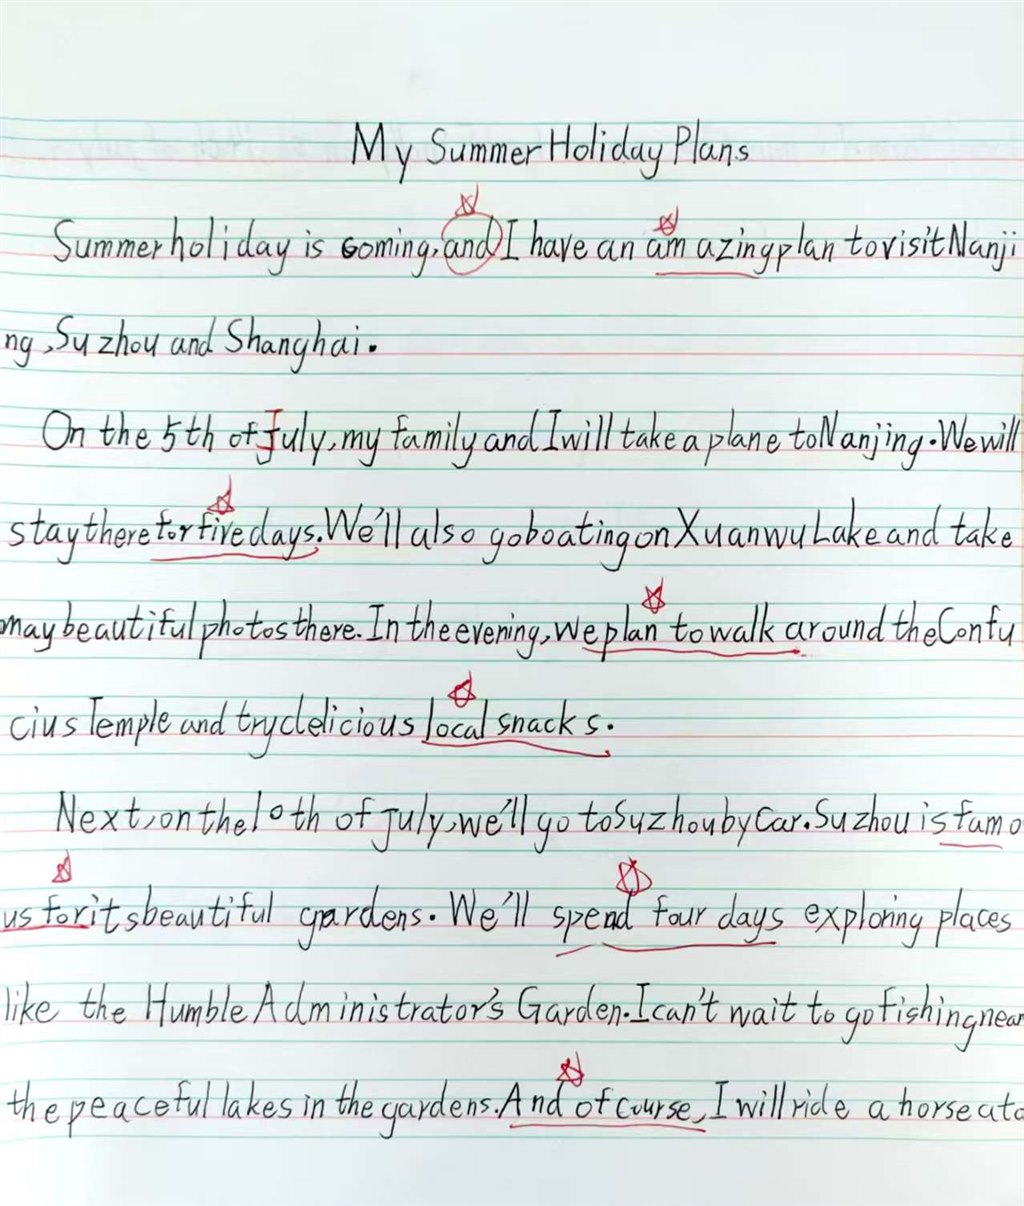 My Summer Holiday Plans
Summer holiday is coming, and I have an amazing plan to visit Nanji
ng, Suzhou and Shanghai.
On the 5th of July, my family and I will take a plane to Nanjing. We will
stay there for five days. We'll also go boating on Xuanwu Lake and take
may beautiful photos there. In the evening, we plan to walk around the Confu
cius Temple and try delicious local snacks.
Next, on the 10th of July, we'll go to Suzhou by Car. Suzhou is famo
us for its beautiful gardens. We'll spend four days exploring places
like the Humble Administrator's Garden. I can't wait to go fishing near
the peaceful lakes in the gardens. And of course, I will ride a horse at